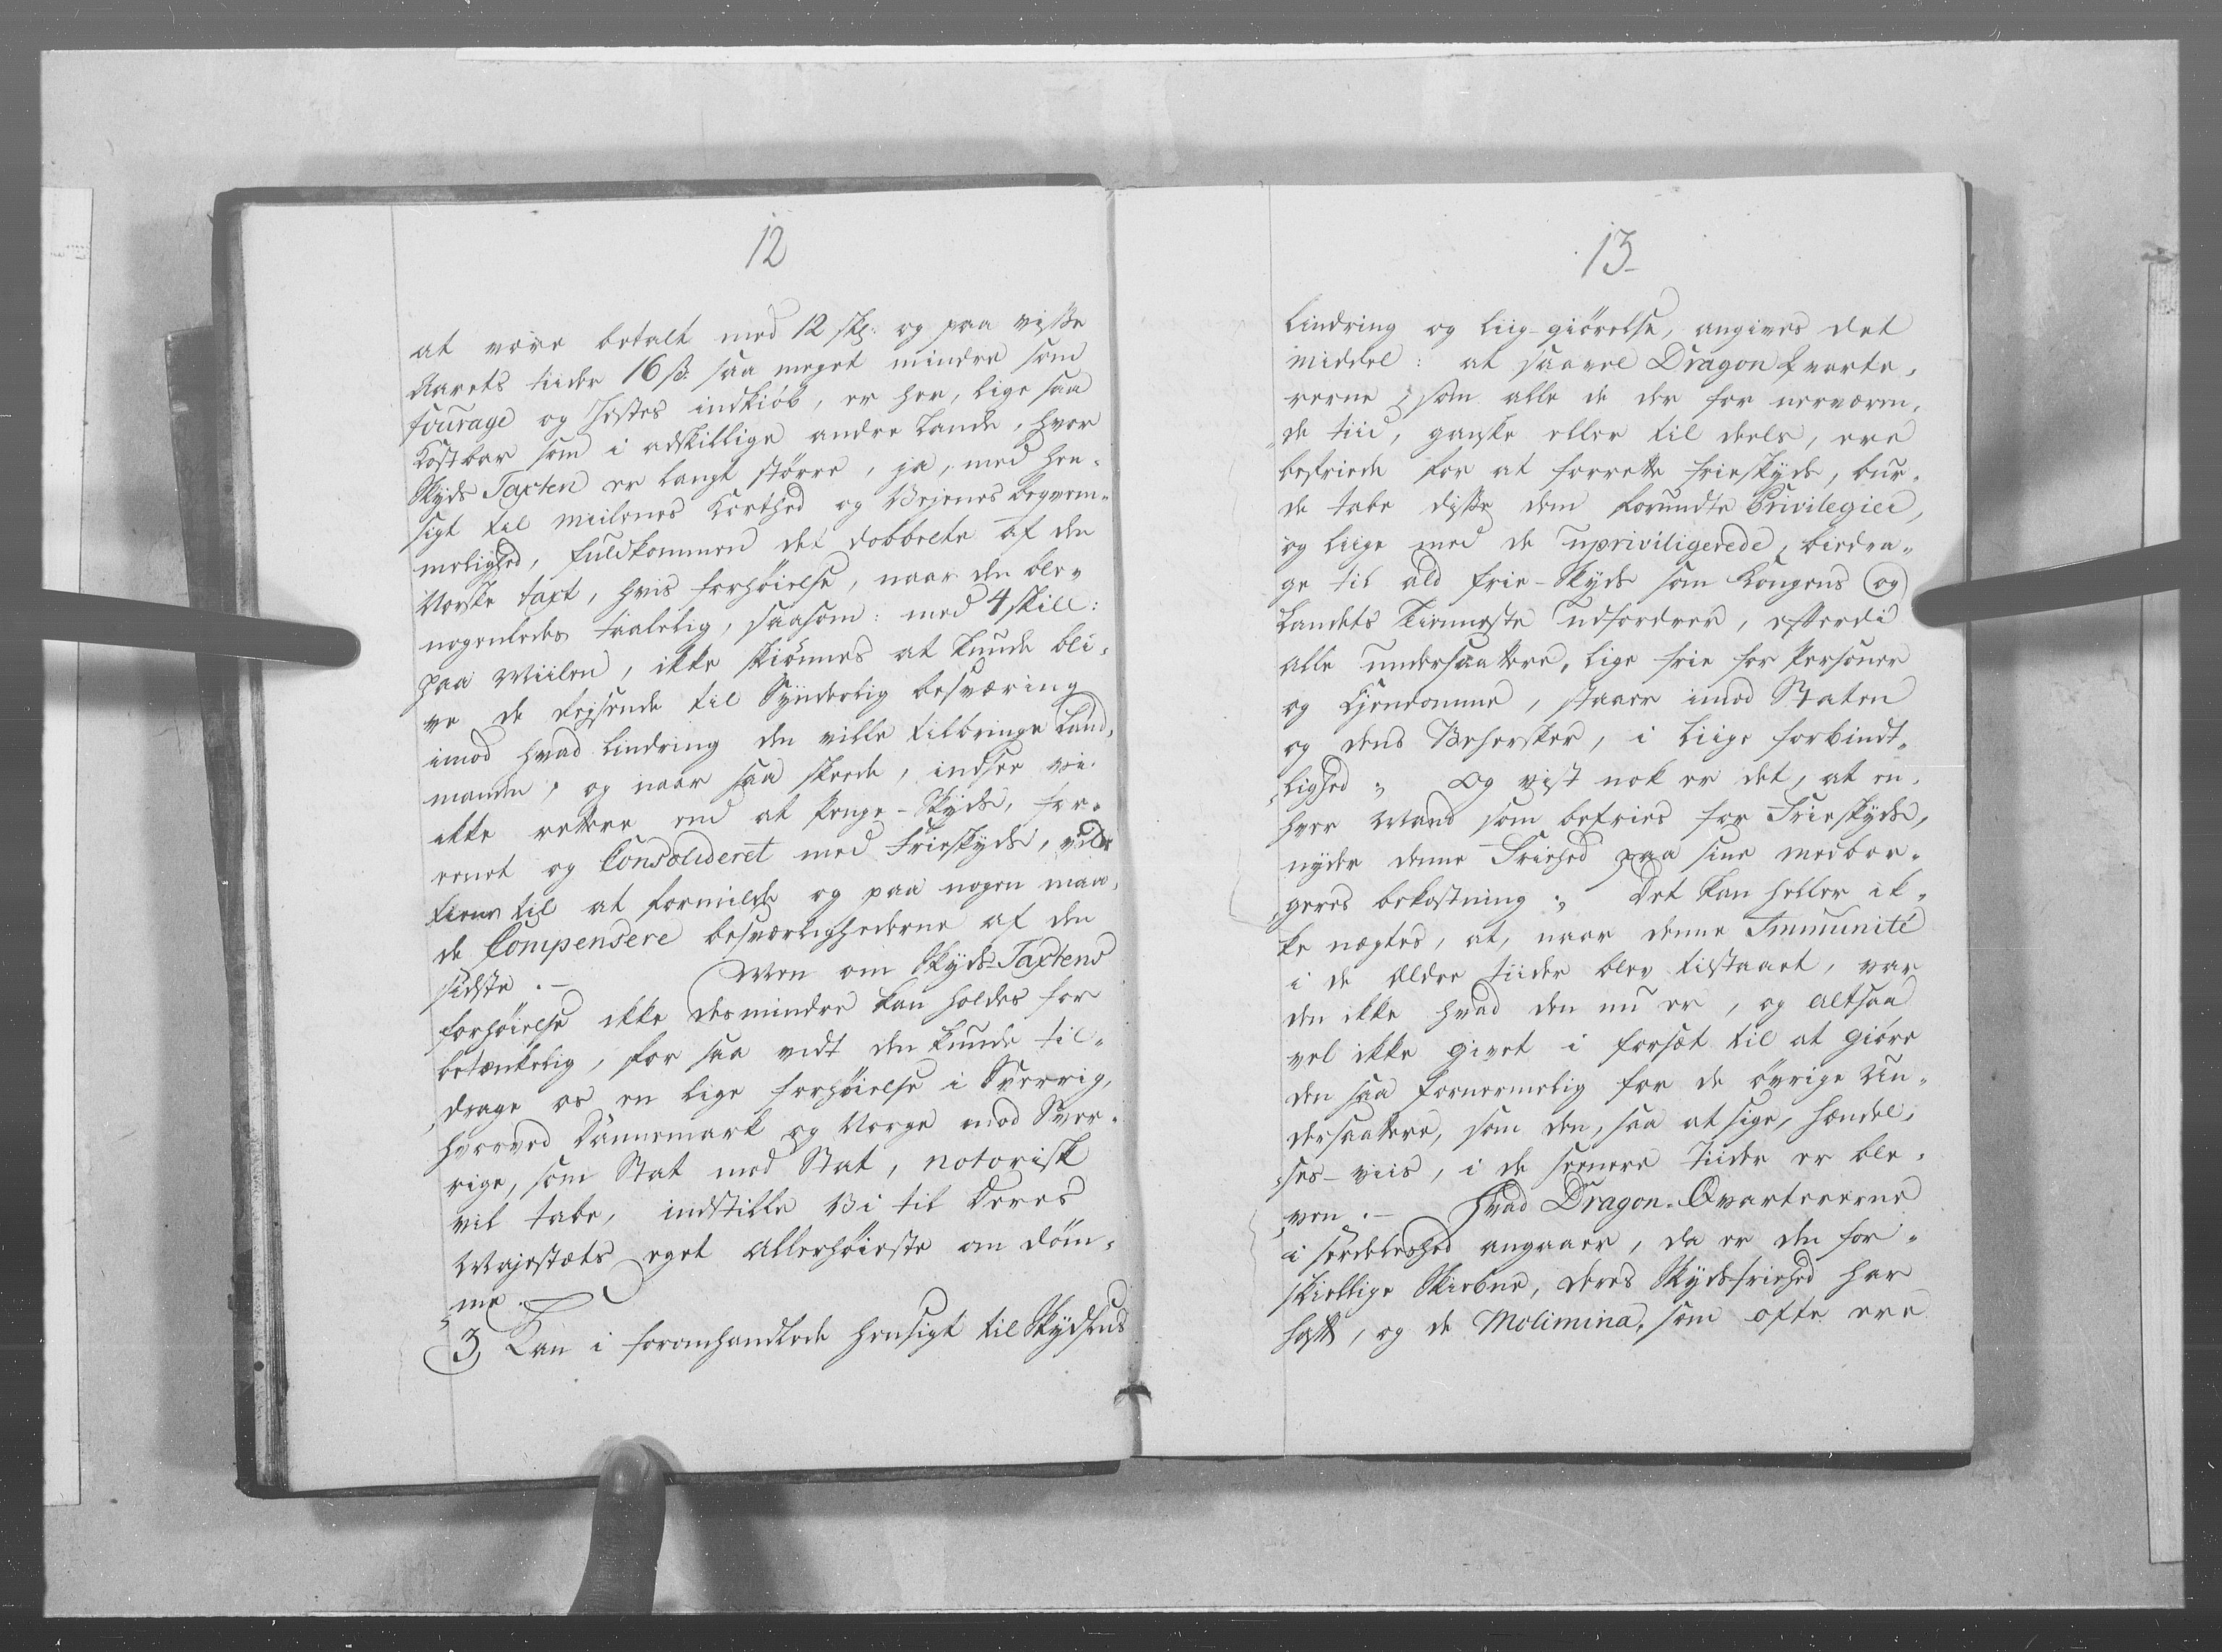 12
at være betalt med 12 skl: og paa visse
Aarets tiider 16 s. saa meget mindre som
fourage og Hestes indkiøb, er her, lige saa
Kostbar som i adskillige andre Lande, hvor
Skyds Taxten er langt større, ja, med hen-
sigt til miilenes Korthed og Vejenes beqvem-
melighed, fuldkommen det dobbelte af den
Norske taxt, hvis forhøielse, naar den blev
nogenledes taalelig, saasom: med 4 skill:
paa Miilen, ikke skiønnes at kunde bli-
ve de Reisende til Synderlig besværing
imod hvad Lindring den ville tilbringe Land-
manden, og naar saa skeede, indsee vi
ikke rettere end at Penge-Skyds, for-
enet og Consolideret med Frieskyds, vilde
tiene til at formilde og paa nogen maa-
de Compensere besværlighederne af den
sidste. — Men om Skyds-Taxtens
forhøielse ikke desmindre kan holdes for
betænkelig, for saa vidt den kunde til-
drage os en lige forhøielse i Sverrig,
hvorved Dannemark og Norge mod Sver-
rige, som Stat mod Stat, notorisk
vil tabe, indstille Vi til Deres
Majestæts eget allerhøieste om døm-
me.
3, Kan i foromhandlede hensigt til Skydsens
13
Lindring og liig-giørelse, angives det
middel: at saavel Dragon qvarte-
rerne som alle de der for nerværen-
de tiid, ganske eller til deels, ere
befriede for at forrette frieskyds, bur-
de tabe disse dem forundte Privilegier,
og liige med de upriviligerede, bidra-
ge til ald frie-Skyds som Kongens og
Landets Tienneste udfordrer, efterdi
alle undersaattere, lige frie for Personer
og Ejendomme, staaer imod Staten
og dens Behersker, i Liige forbindt-
lighed; Og vist nok er det, at en-
hver Mand som befries for Frieskyds,
nyder denne Friehed paa sine medbor-
geres bekostning; Det kan heller ik-
ke nægtes, at, naar denne Immunité
i de Ældre tiider blev tilstaaet, var
den ikke hvad den nu er, og altsaa
vel ikke givet i forsæt til at giøre
den saa fornermelig for de øvrige Un-
dersaattere, som den, saa at sige, hændel-
ses-viis, i de seenere Tiider er ble-
ven. — Hvad Dragon-Qvartererne
i særdeleshed angaaer, da er den for-
skiellige Skiebne, deres Skydsfriehed har
haft, og de Molimina, som ofte ere